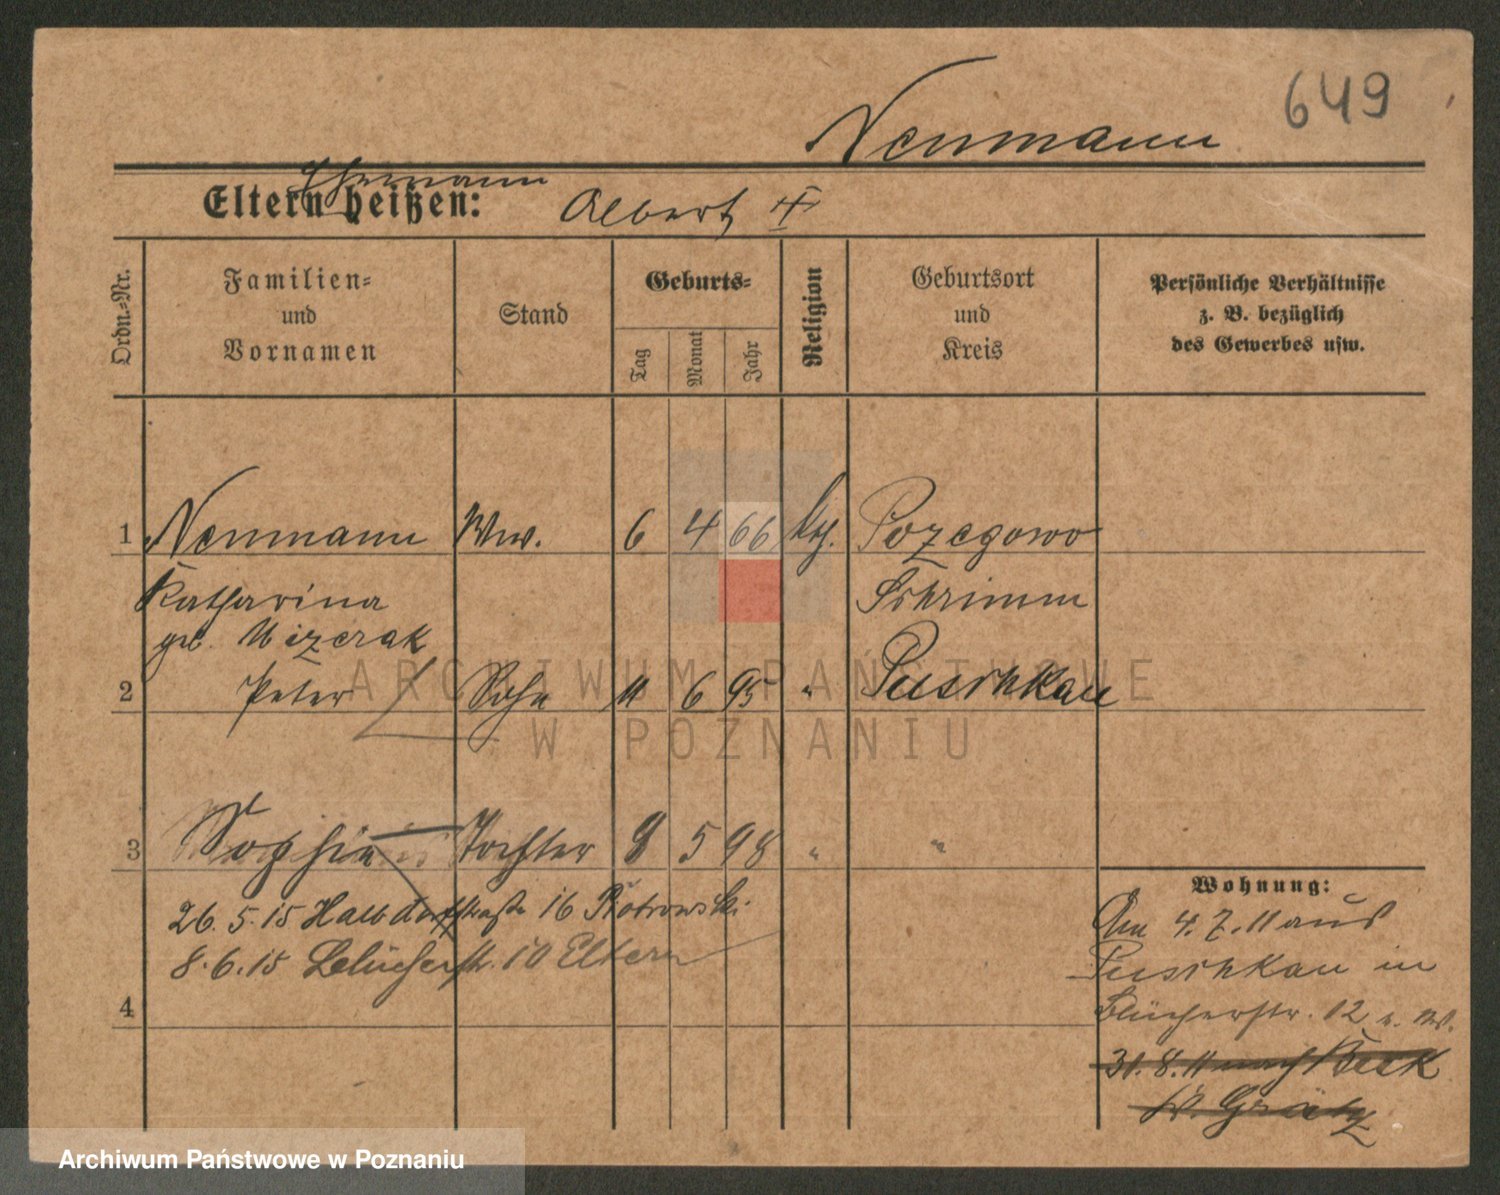 649
Neumann
Ehemann
Eltern heißen: Albert ✝
Ordn.-Nr.
Familien-
und
Vornamen
Stand
Geburts-
Tag
Monat
Jahr
Religion
Geburtsort
und
Kreis
Persönliche Verhältnisse
z. B. bezüglich
des Gewerbes usw.
1 Neumann Ww. 6 4 66 kth. Pozegowo
Katharina Schrimm
geb. Wizerak
2 Peter Sohn 11 6 95 " Puschkau
3 Sophie Tochter 8 5 98 " "
26. 5. 15 Halbdorfstraße 16 Piotrowski
8. 6. 15 Blücherstr. 10 Eltern
4
Wohnung:
Am 4. 7. 11 aus
Puschkau in
Blücherstr. 12 b. W.
31. 8. 11 nach Buk
Kr. Grätz
ARCHIWUM PAŃSTWOWE
W POZNANIU
Archiwum Państwowe w Poznaniu